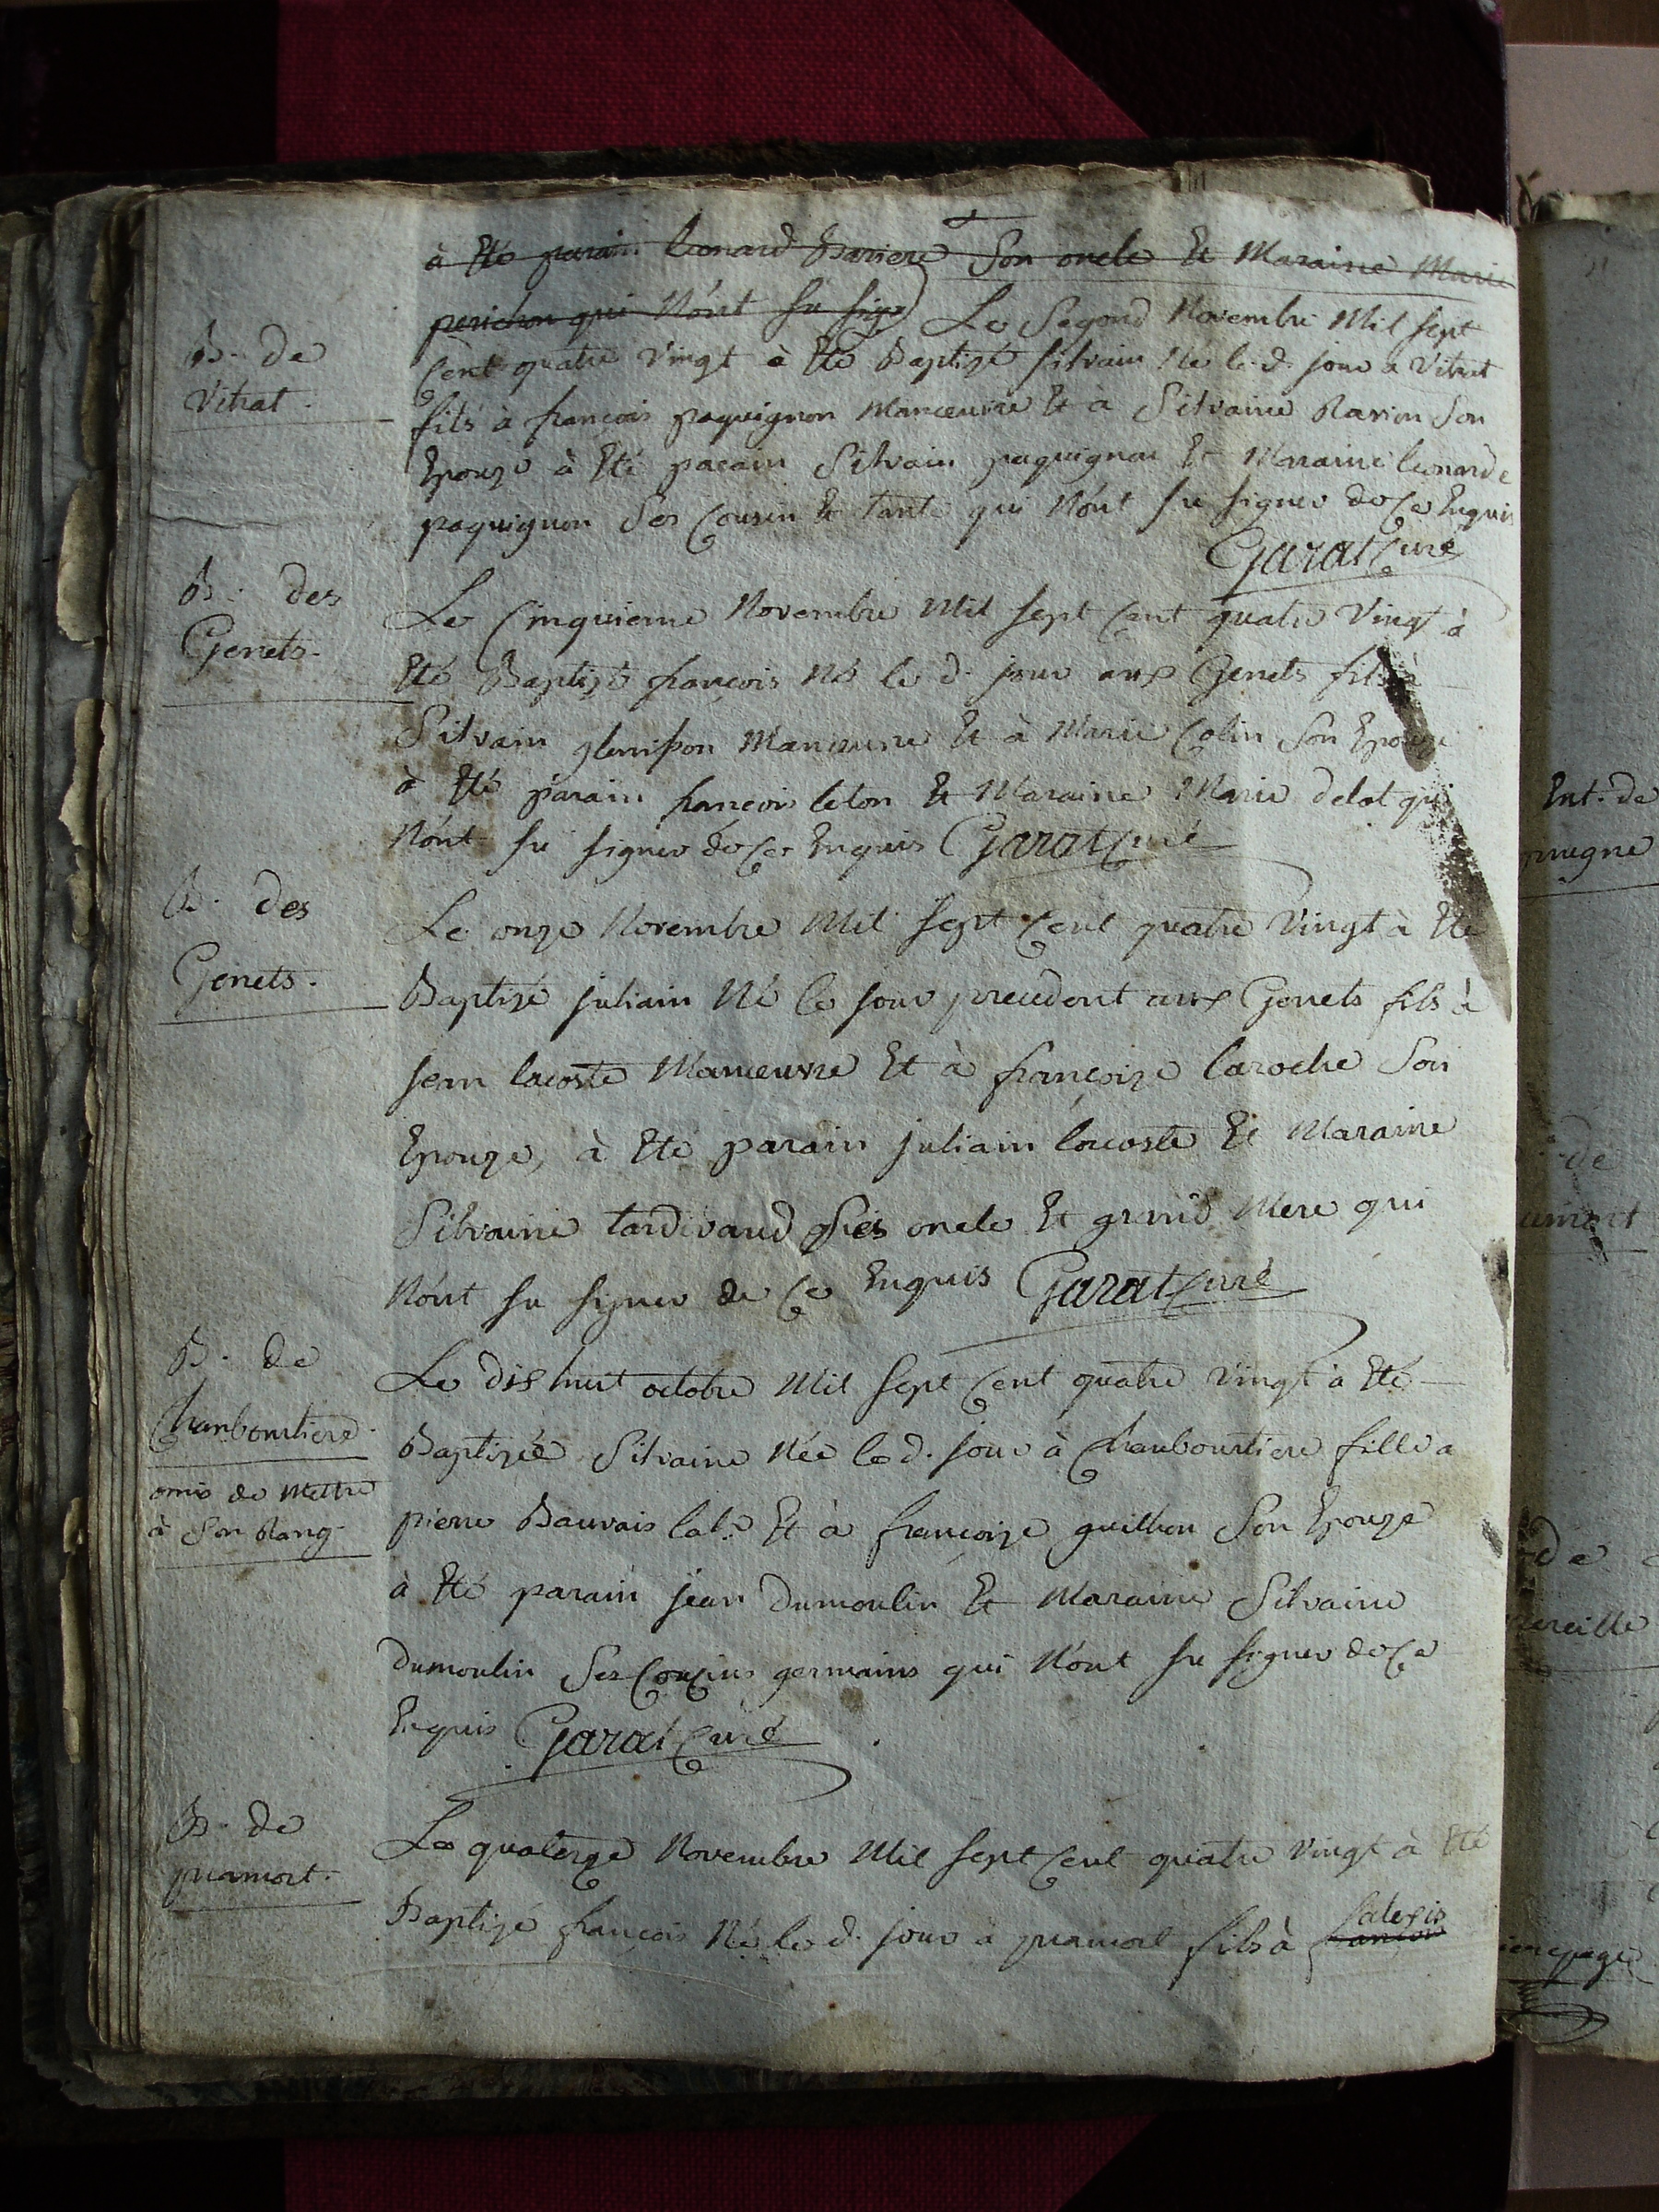 à Eté parain leonard barriere Son oncle Et Maraine Marie
perichon qui N'ont su sige) Le Segond Novembre Mil sept
B. de
Vitrat.
Cent quatre Vingt à Eté Baptizé silvain Né le d. jour a Vitrat
fils à françois paquignon Manœuvre Et à Silvaine Ravion Son
Epouze à Eté parain Silvain paquignon Et Maraine leonarde
paquignon Ses Cousin Et tante qui N'ont su signer de Ce Enquis
Garat Curé
B. des
Genets.
Le Cinquieme Novembre Mil sept Cent quatre Vingt à
Eté Baptizé françois Né le d. jour aux Genets fils à
Silvain glenisson Manœuvre Et à Marie Colin Son Epouze
à Eté parain françois leton Et Maraine Marie delot qui
N'ont su signer de Ce Enquis Garat Curé
B. des
Genets.
Le onze Novembre Mil sept Cent quatre Vingt à Eté
Baptizé juliain Né le jour precedent aux Genets fils à
jean lacoste Manœuvre Et à françoize laroche Son
Epouze, à Eté parain juliain lacoste Et Maraine
Silvaine tardivaud Ses oncle Et grand Mere qui
N'ont su signer de Ce Enquis Garat Curé
B. de
Chanbourtiere.
omis de Mettre
à Son Rang.
Le dishuit octobre Mil sept Cent quatre Vingt à Eté
Baptizée Silvaine Née le d. jour à Chanbourtiere fille a
pierre Bauvais lab.r Et à françoize guillon Son Epouze
à Eté parain jean Dumoulin Et Maraine Silvaine
Dumoulin Ses Couzins germains qui N'ont su signer de Ce
Enquis Garat Curé
B. de
pramort.
Le quatorze Novembre Mil sept Cent quatre Vingt à Eté
Baptizé françois Né le d. jour à pramort fils à françois
Ent. de
de
de